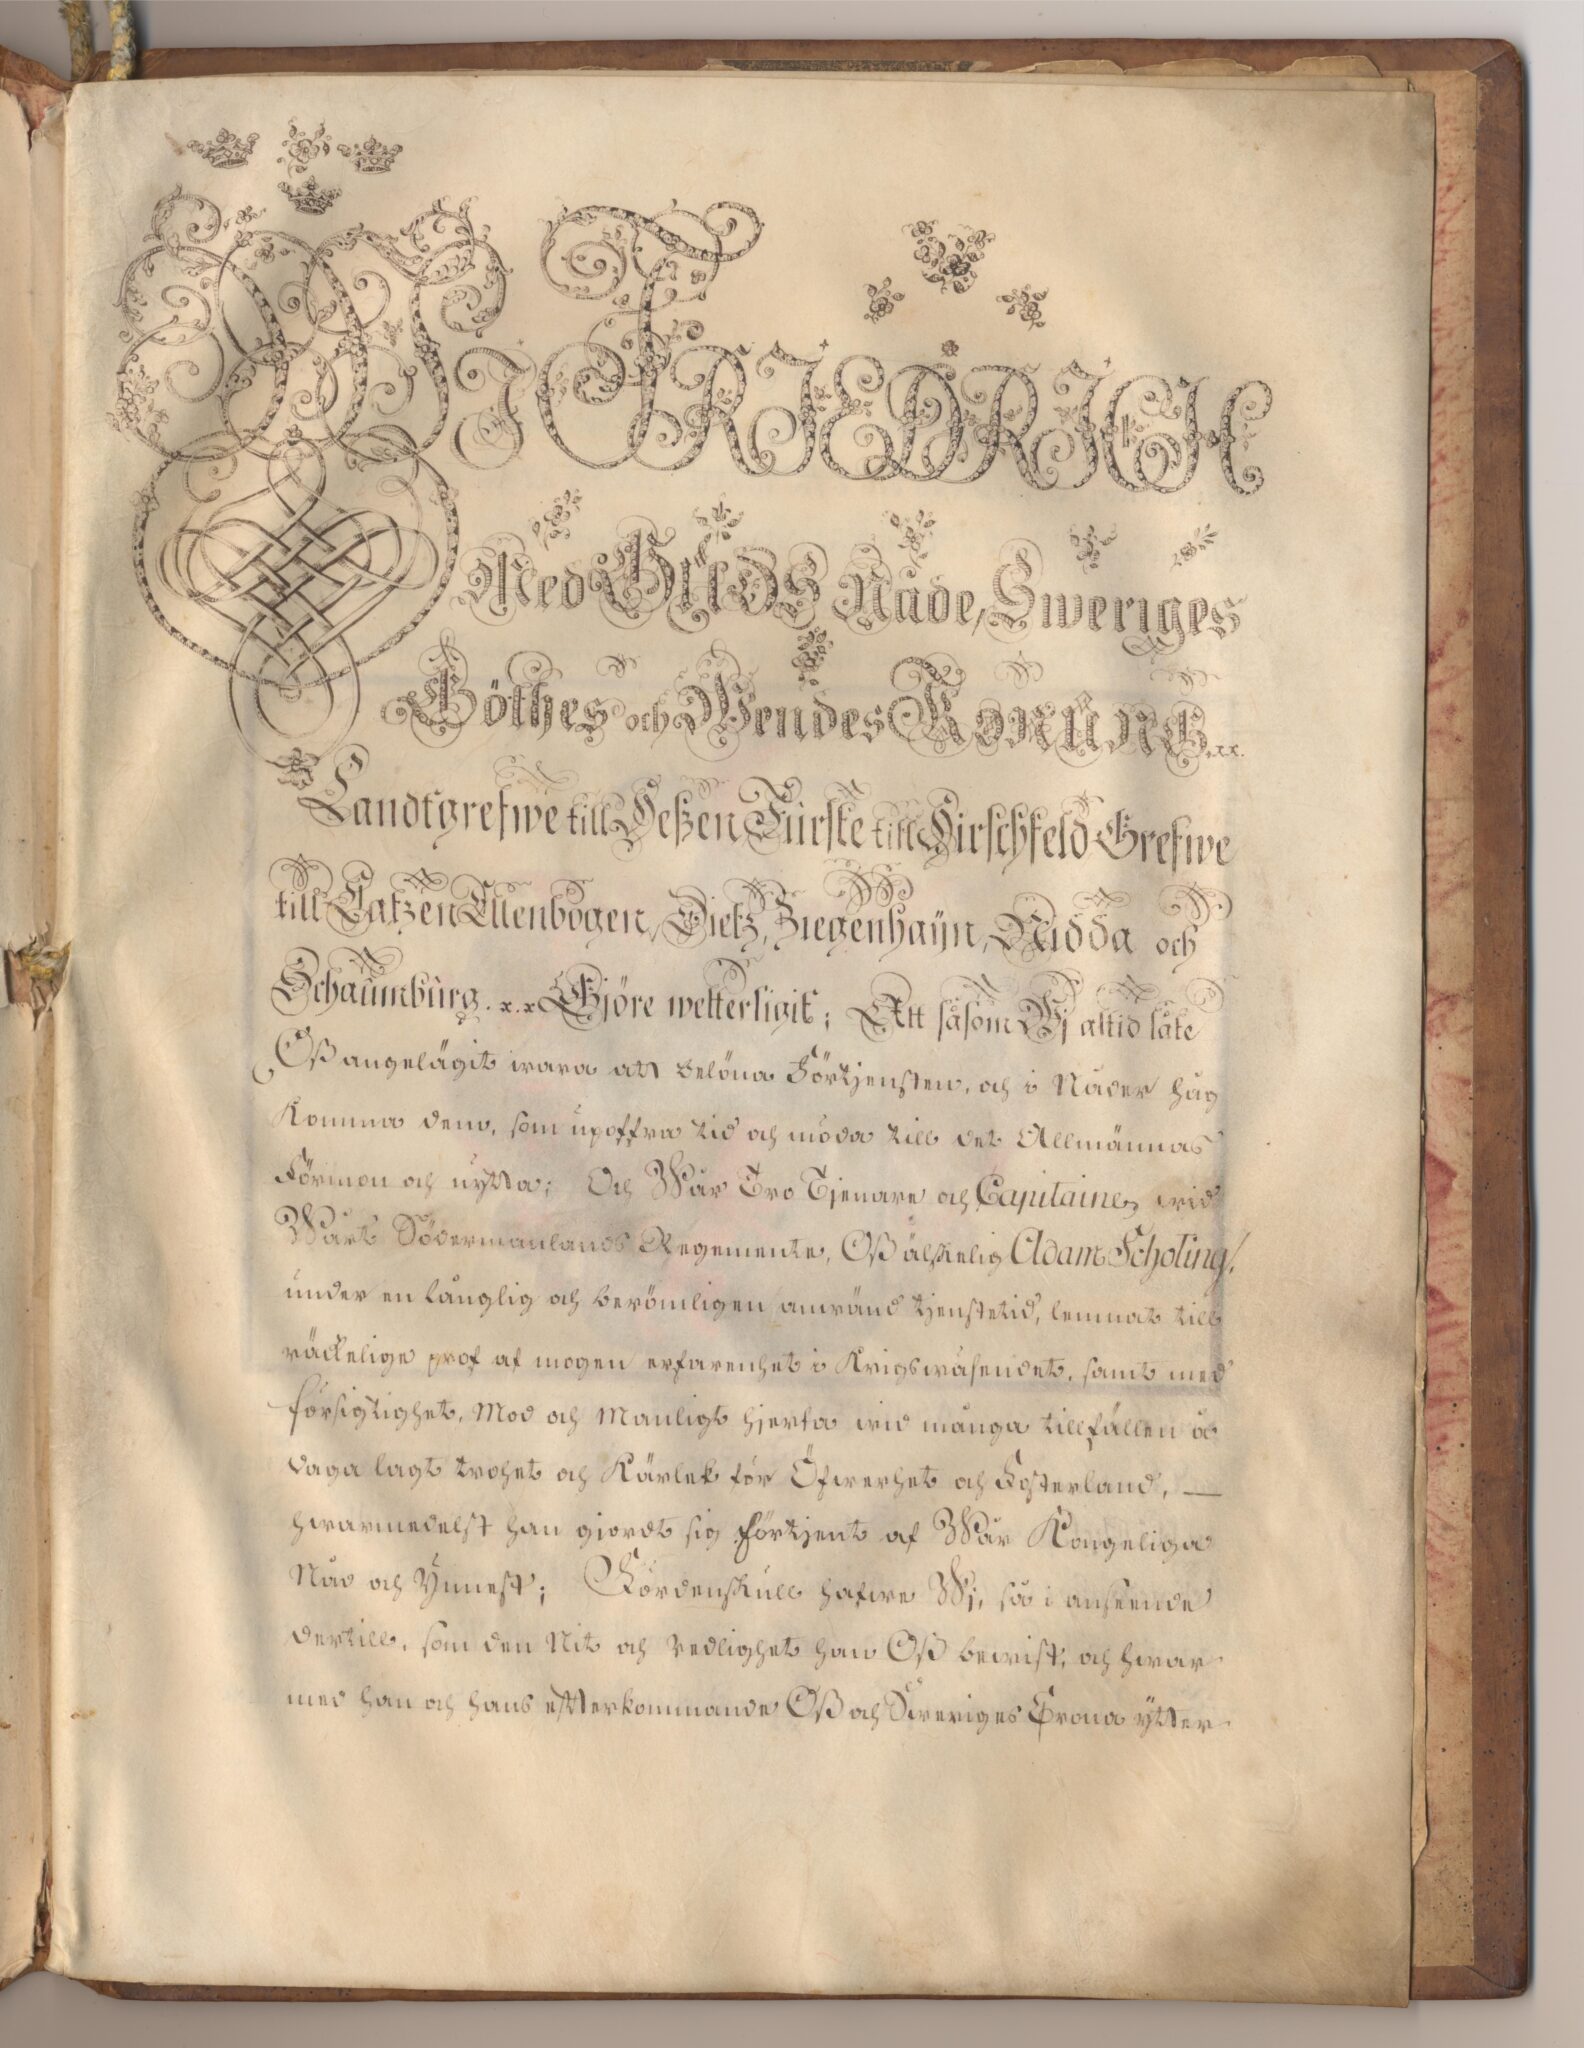 WJ FRIEDRICH
Med GUDS Nåde, Sweriges
Göthes och Wendes KONUNG x.x.
Landtgrefwe till Heßen Fürste till Hirschfeld Grefwe
till CatzenEllenbogen, Dietz, Ziegenhaÿn, Nidda och
Schaumburg. x. x Gjöre wetterligit; Att såsom Wj altid låte
Oß angelägit wara att belöna Förtjensten, och i Nåder hug
komma dem, som upoffra tid och möda till det Allmännas
Förmon och nytta; Och Wår Tro Tjenare och Capitaine wid
Wårt Södermanlands Regemente, Oß älskelig Adam Scholing,
under en långlig och berömligen anwänd tjenstetid, lemnat till
räckelige prof af mogen erfarenhet i Krigswäsendet, samt med
försigtighet, Mod och Manligt hjerta wid många tillfällen å
daga lagt trohet och Kärlek för Öfwerhet och Fosterland, —
hwarmedelst han gjordt sig förtjent af Wår Kongeliga
Nåd och Ynnest; Fördenskull hafwe Wj, så i anseende
dertill, som den Nit och redlighet han Oß bewist, och hwar
med han och hans efterkommande Oß och Sweriges Crona ytter